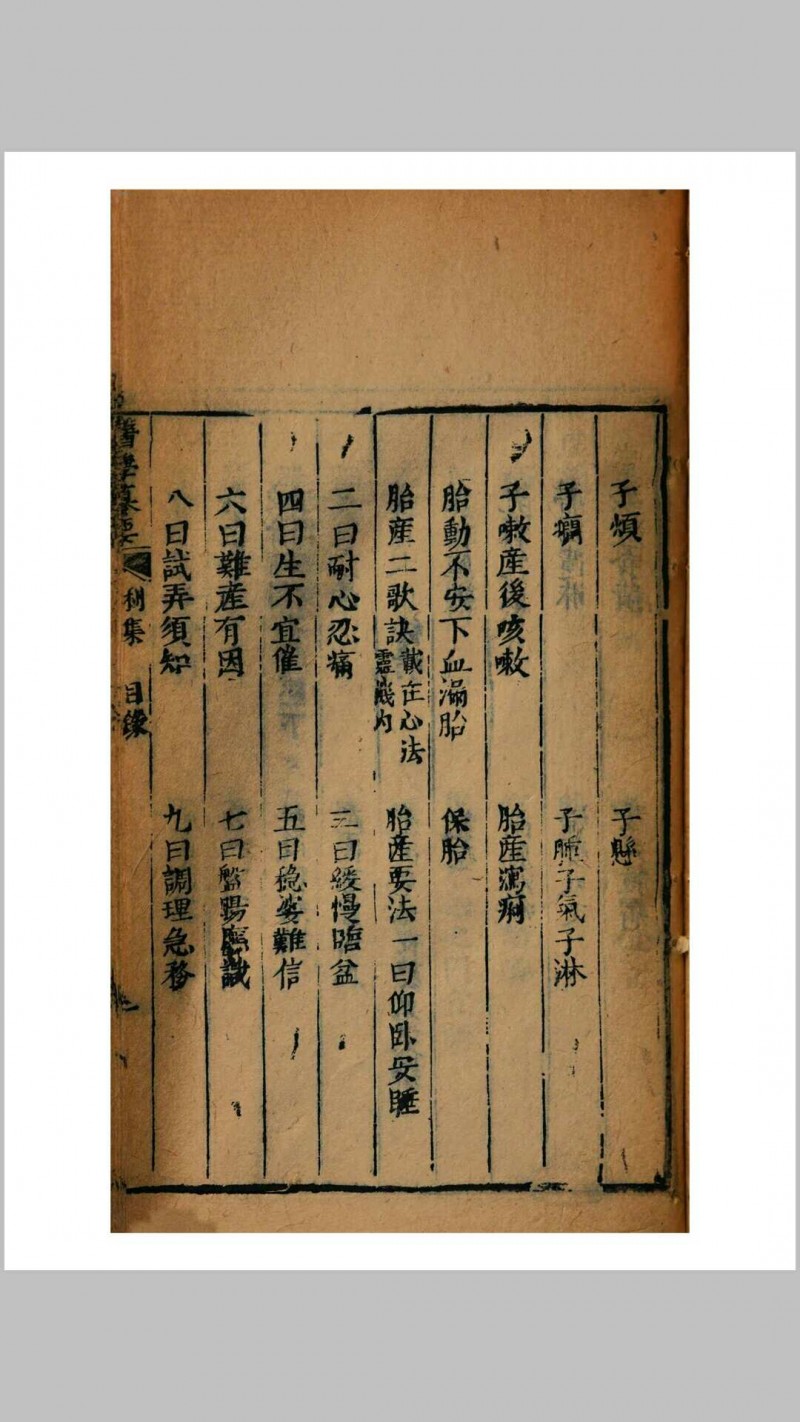 子煩　子懸
子癇　子腫子氣子淋
子嗽產後咳嗽　胎產瀉痢
胎動不安下血漏胎　保胎
胎產二歌訣載在心法靈機內　胎產要法一曰仰卧安睡
二曰耐心忍痛　三曰緩慢臨盆
四曰生不宜催　五曰穩婆難信
六曰難產有因　七曰盤腸臨識
八曰試弄須知　九曰調理急務
醫學纂要　利集　目錄